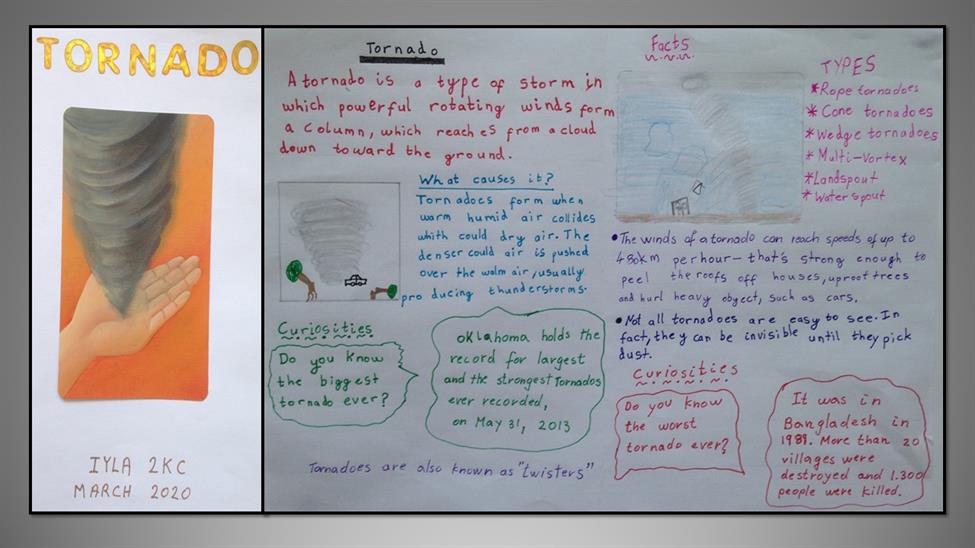 TORNADO
IYLA 2KC
MARCH 2020
Tornado
A tornado is a type of storm in
which powerful rotating winds form
a column, which reaches from a cloud
down toward the ground.
What causes it?
Tornadoes form when
warm humid air collides
whith could dry air. The
denser could air is pushed
over the walm air, usually
producing thunderstorms.
Curiosities
Do you know
the biggest
tornado ever?
oklahoma holds the
record for largest
and the strongest Tornados
ever recorded,
on May 31, 2013
Tornadoes are also known as "twisters"
Facts
TYPES
*Rope tornadoes
* Cone tornadoes
*Wedge tornadoes
*Multi-Vortex
*Landspout
*Waterspout
•The winds of a tornado can reach speeds of up to
480km per hour— that's strong enough to
peel the roofs off houses, uproot trees
and hurl heavy object, such as cars.
•Not all tornadoes are easy to see. In
fact, they can be invisible until they pick
dust.
Curiosities
Do you know
the worst
tornado ever?
It was in
Bangladesh in
1989. More than 20
villages were
destroyed and 1.300
people were killed.